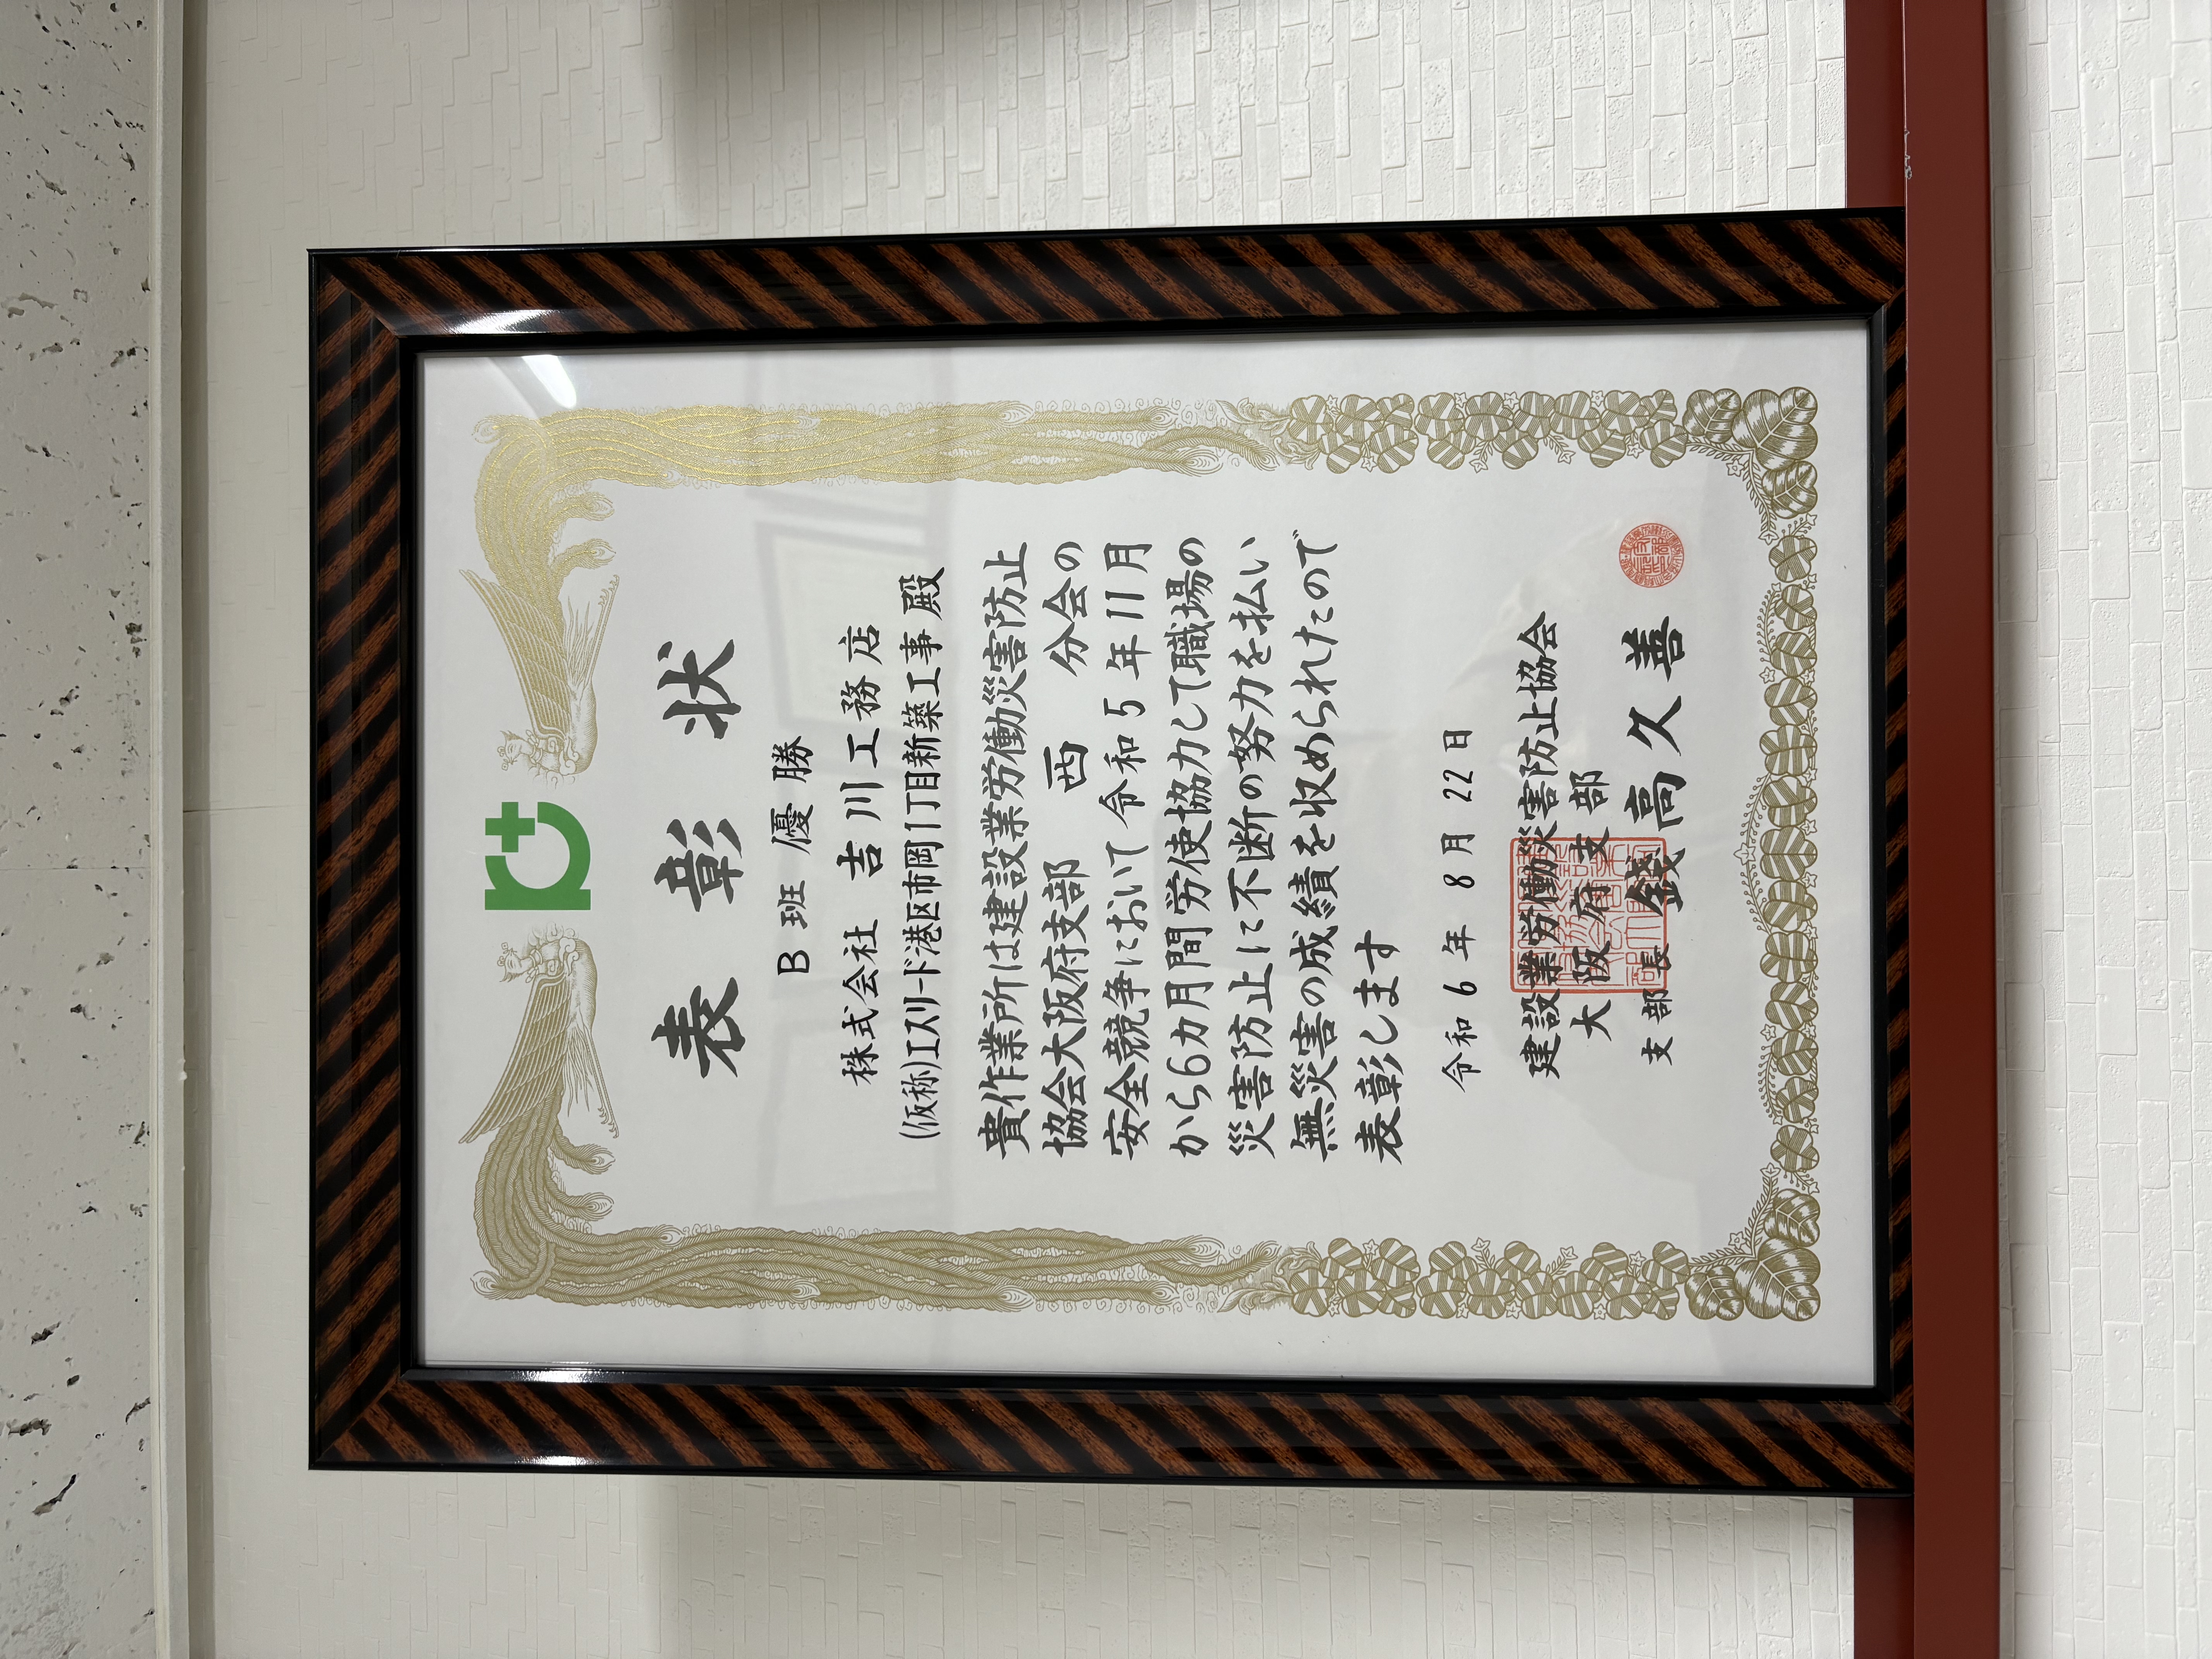 表彰状
B班 優勝
株式会社 吉川工務店
(仮称)エスリード港区市岡1丁目新築工事 殿
貴作業所は建設業労働災害防止
協会大阪府支部 西 分会の
安全競争において令和5年11月
から6カ月間労使協力して職場の
災害防止に不断の努力を払い
無災害の成績を収められたので
表彰します
令和6年8月22日
建設業労働災害防止協会
大阪府支部
支部長 錢高久善